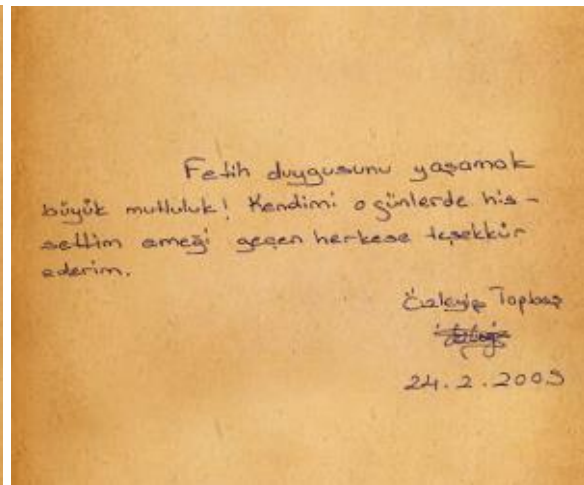 Fetih duygusunu yaşamak
büyük mutluluk! Kendimi o günlerde his-
settim emeği geçen herkese teşekkür
ederim.
Özleyiş Topbaş
24.2.2009